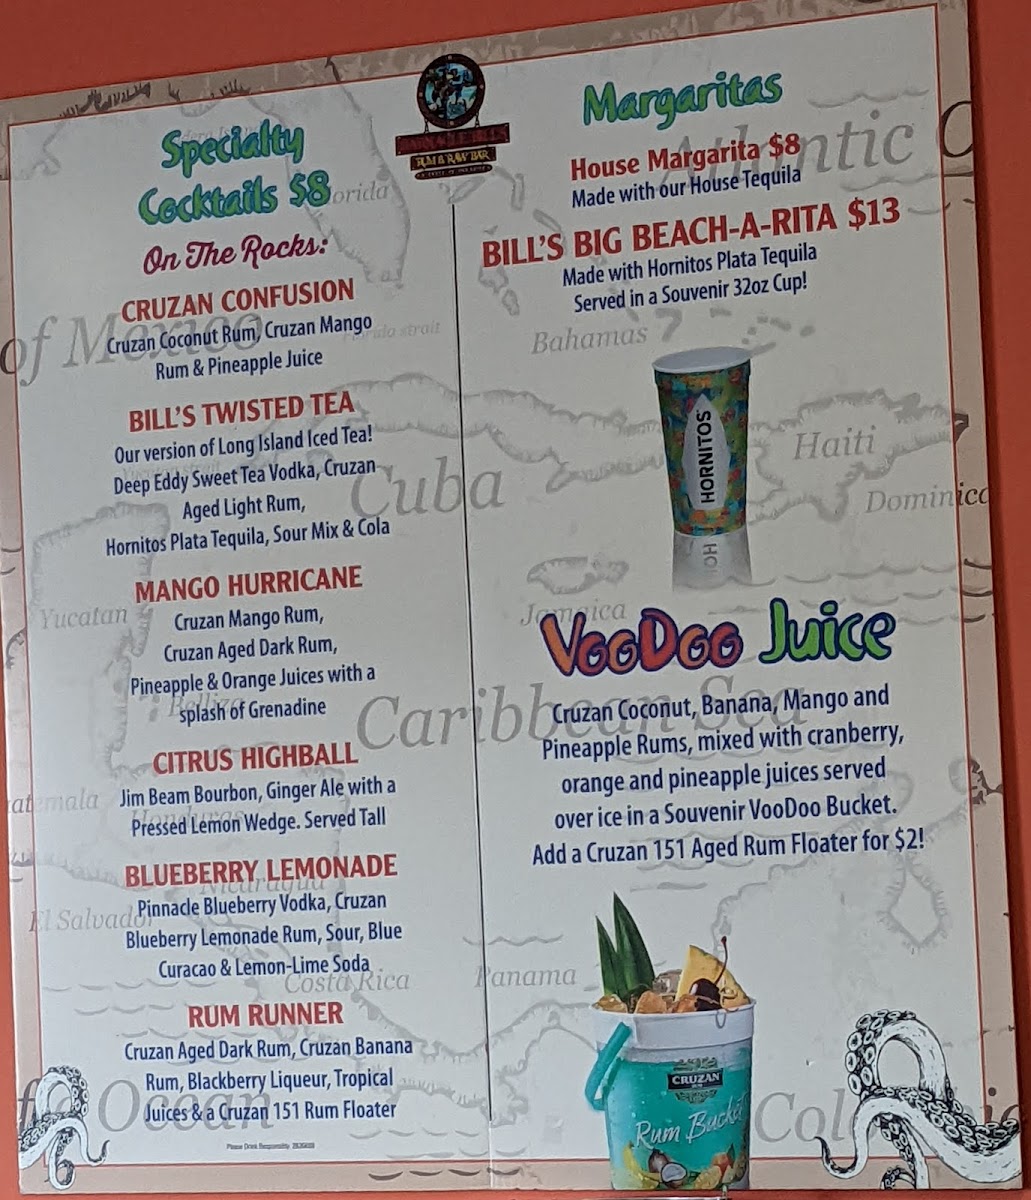 Specialty
Cocktails $8
On The Rocks:
CRUZAN CONFUSION
Cruzan Coconut Rum, Cruzan Mango
Rum & Pineapple Juice
BILL'S TWISTED TEA
Our version of Long Island Iced Tea!
Deep Eddy Sweet Tea Vodka, Cruzan
Aged Light Rum,
Hornitos Plata Tequila, Sour Mix & Cola
MANGO HURRICANE
Cruzan Mango Rum,
Cruzan Aged Dark Rum,
Pineapple & Orange Juices with a
splash of Grenadine
CITRUS HIGHBALL
Jim Beam Bourbon, Ginger Ale with a
Pressed Lemon Wedge. Served Tall
BLUEBERRY LEMONADE
Pinnacle Blueberry Vodka, Cruzan
Blueberry Lemonade Rum, Sour, Blue
Curacao & Lemon-Lime Soda
RUM RUNNER
Cruzan Aged Dark Rum, Cruzan Banana
Rum, Blackberry Liqueur, Tropical
Juices & a Cruzan 151 Rum Floater
Please Drink Responsibly
RUM & RAW BAR
Margaritas
House Margarita $8
Made with our House Tequila
BILL'S BIG BEACH-A-RITA $13
Made with Hornitos Plata Tequila
Served in a Souvenir 32oz Cup!
HORNITOS
HO
VooDoo Juice
Cruzan Coconut, Banana, Mango and
Pineapple Rums, mixed with cranberry,
orange and pineapple juices served
over ice in a Souvenir VooDoo Bucket.
Add a Cruzan 151 Aged Rum Floater for $2!
CRUZAN
Rum Bucket
Atlantic O
orida
of Mexico
Florida strait
Bahamas
Cuba
Haiti
Dominica
Yucatan
Jamaica
Belize
Caribbean Sea
atemala
Honduras
Nicaragua
El Salvador
Costa Rica
Panama
Ocean
Colo